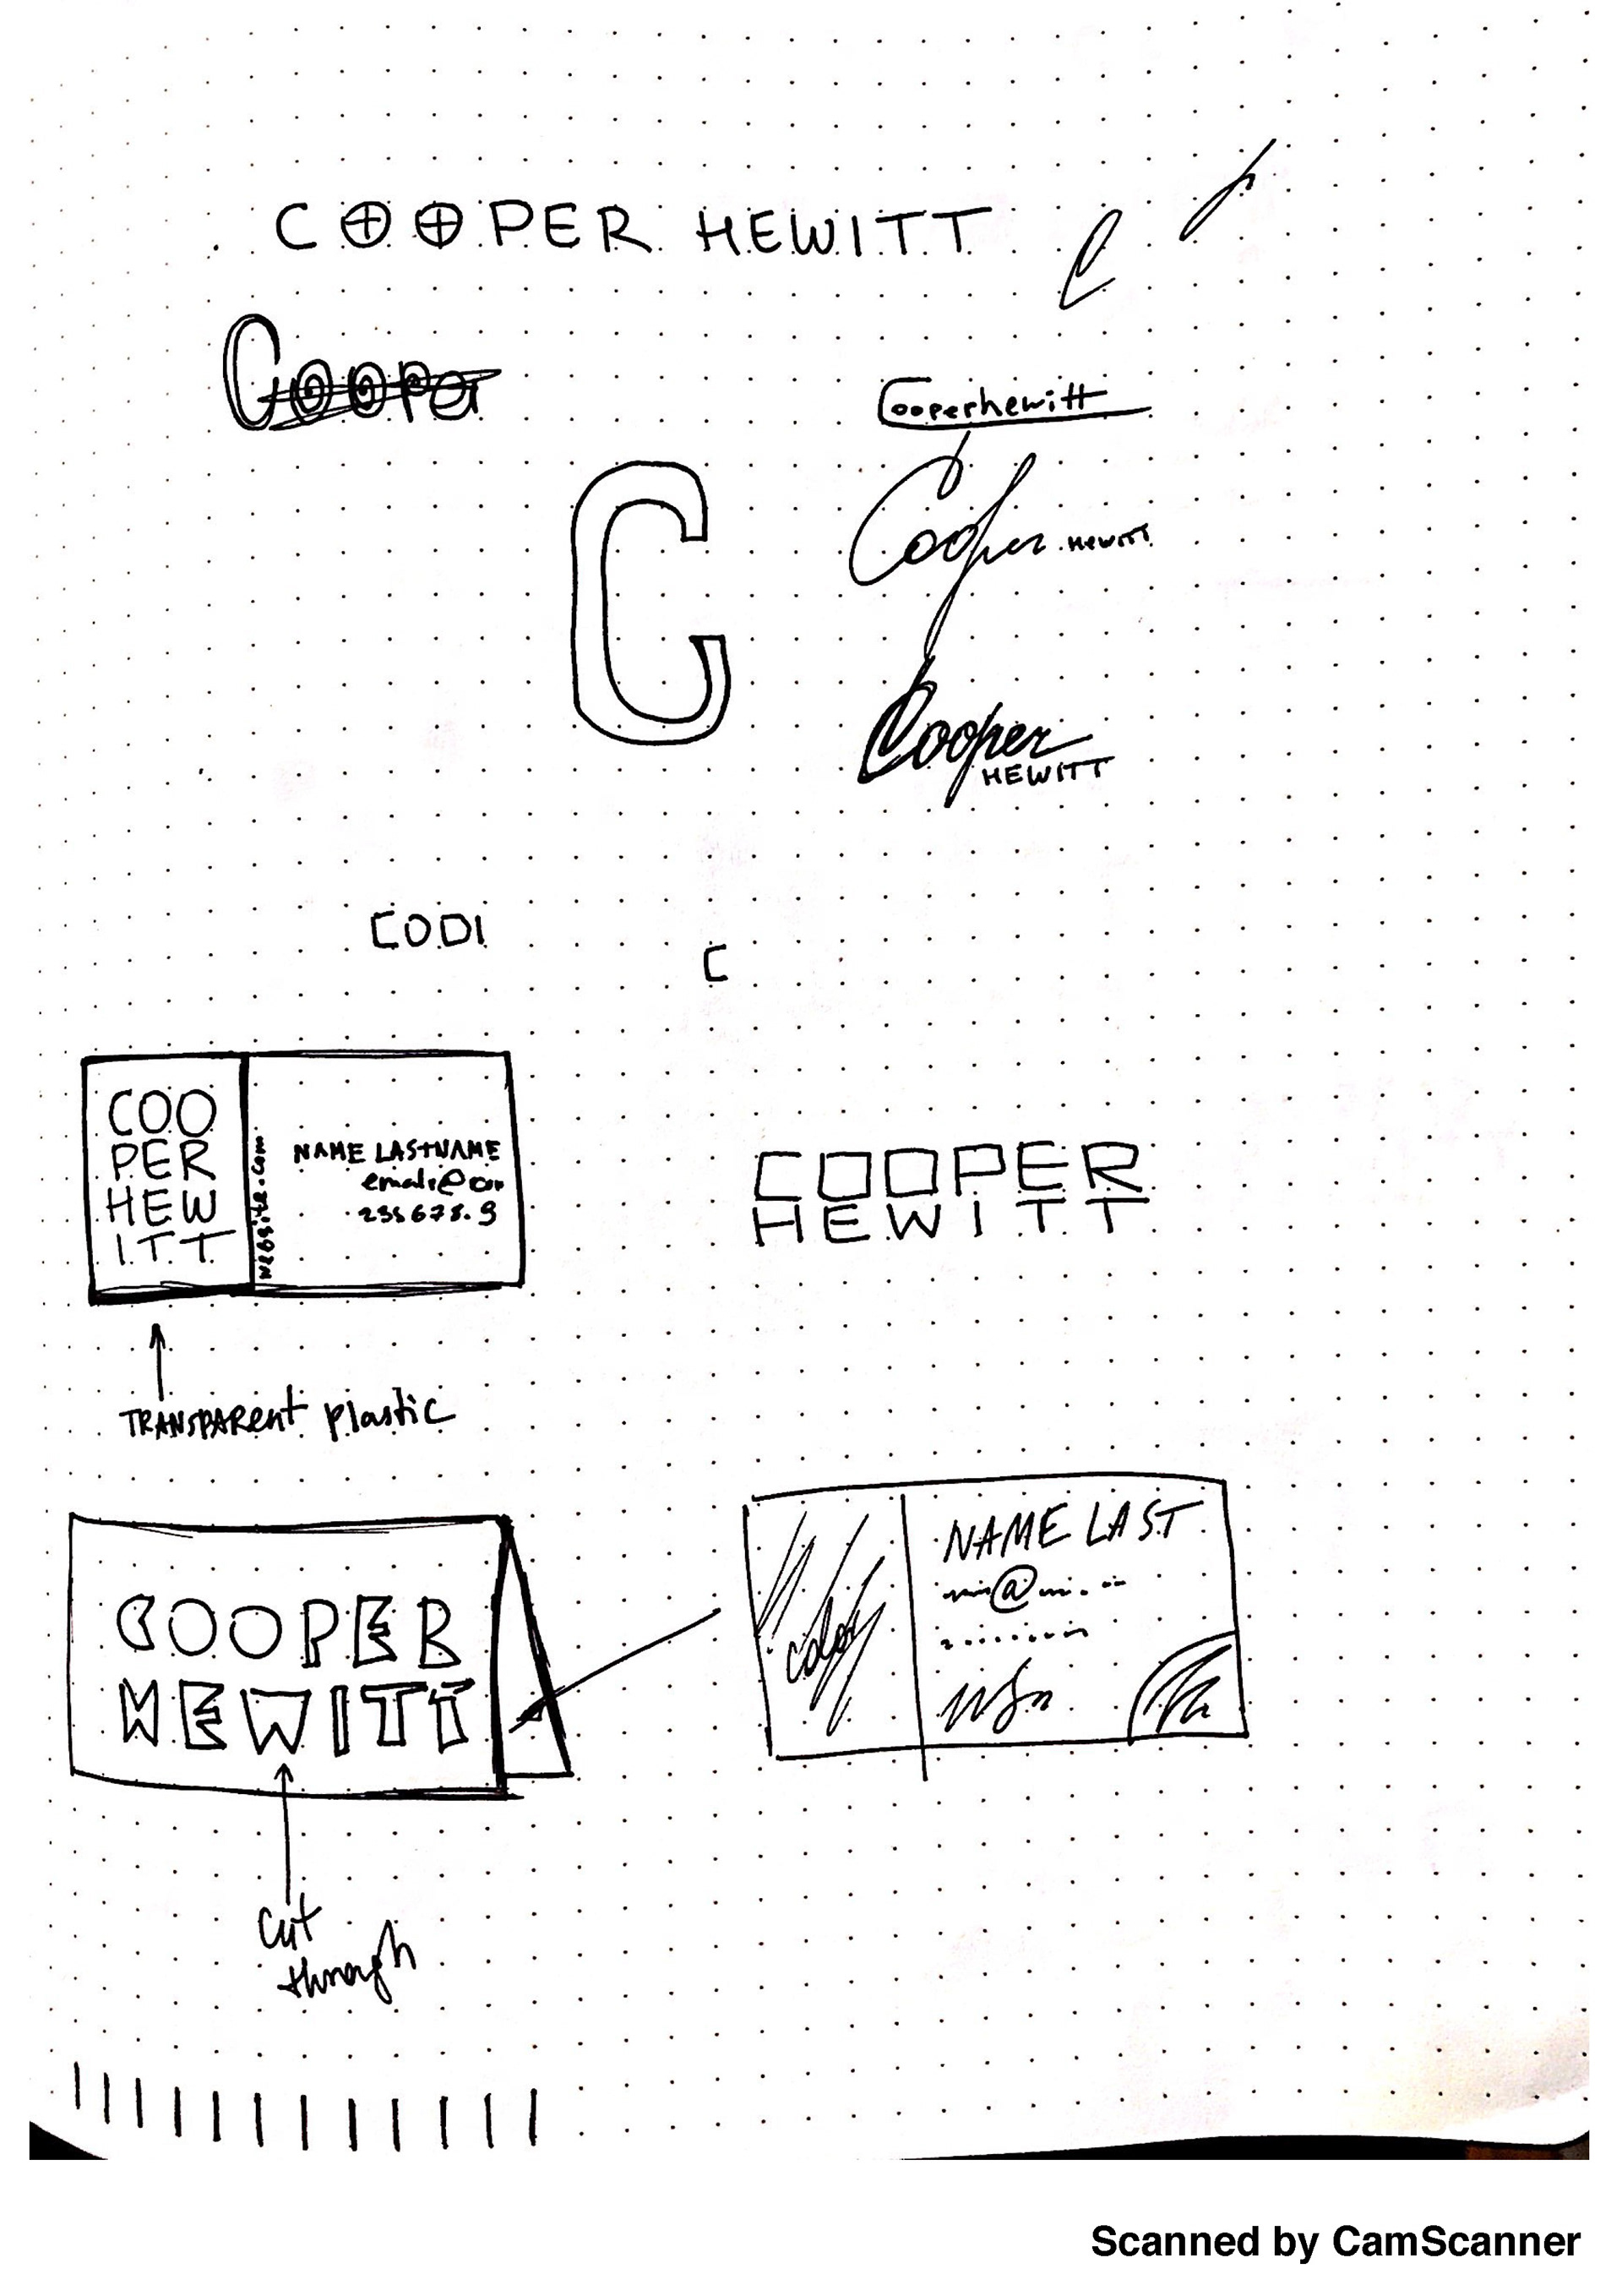 COOPER HEWITT
Cooper
Cooperhewitt
Cooper HEWITT
C
Cooper
HEWITT
CODI
C
COO
PER
HEW
ITT
website.com
NAME LASTNAME
235678.9
COOPER
HEWITT
TRANSPARENT plastic
COOPER
HEWITT
color
NAME LAST
@
cut
through
Scanned by CamScanner